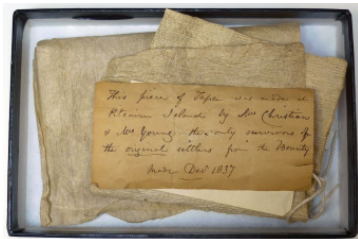 This piece of Tapa was made at
Pitcairn Islands by Mrs Christian
& Mrs Young - the only survivors of
the original settlers from the Bounty
made Decr 1837